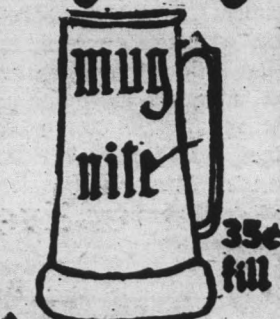 mug
nite
35¢
fill